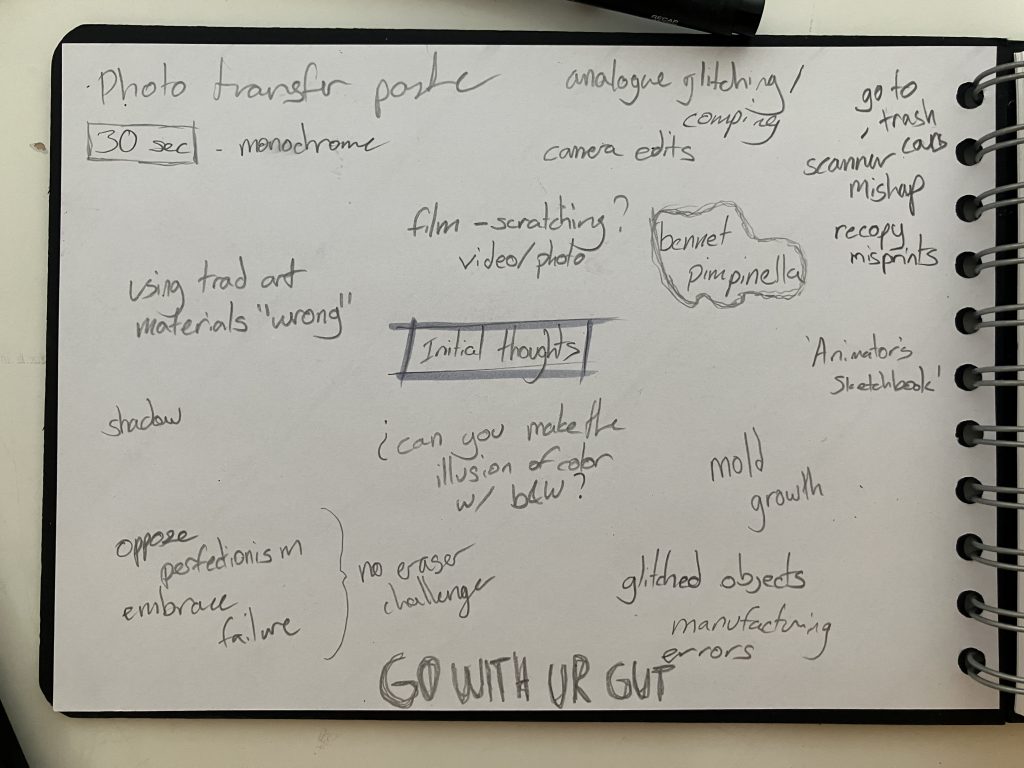 RECAP
Photo transfer paste
30 sec - monochrome
analogue glitching /
comping
camera edits
go to
trash
cans
scanner
mishap
recopy
misprints
film - scratching?
video/photo
bennet
pimpinella
using trad art
materials "wrong"
Initial thoughts
'Animator's
Sketchbook'
shadow
¿can you make the
illusion of color
w/ b&w?
mold
growth
oppose
perfectionism
embrace
failure
no eraser
challenge
glitched objects
manufacturing
errors
GO WITH UR GUT